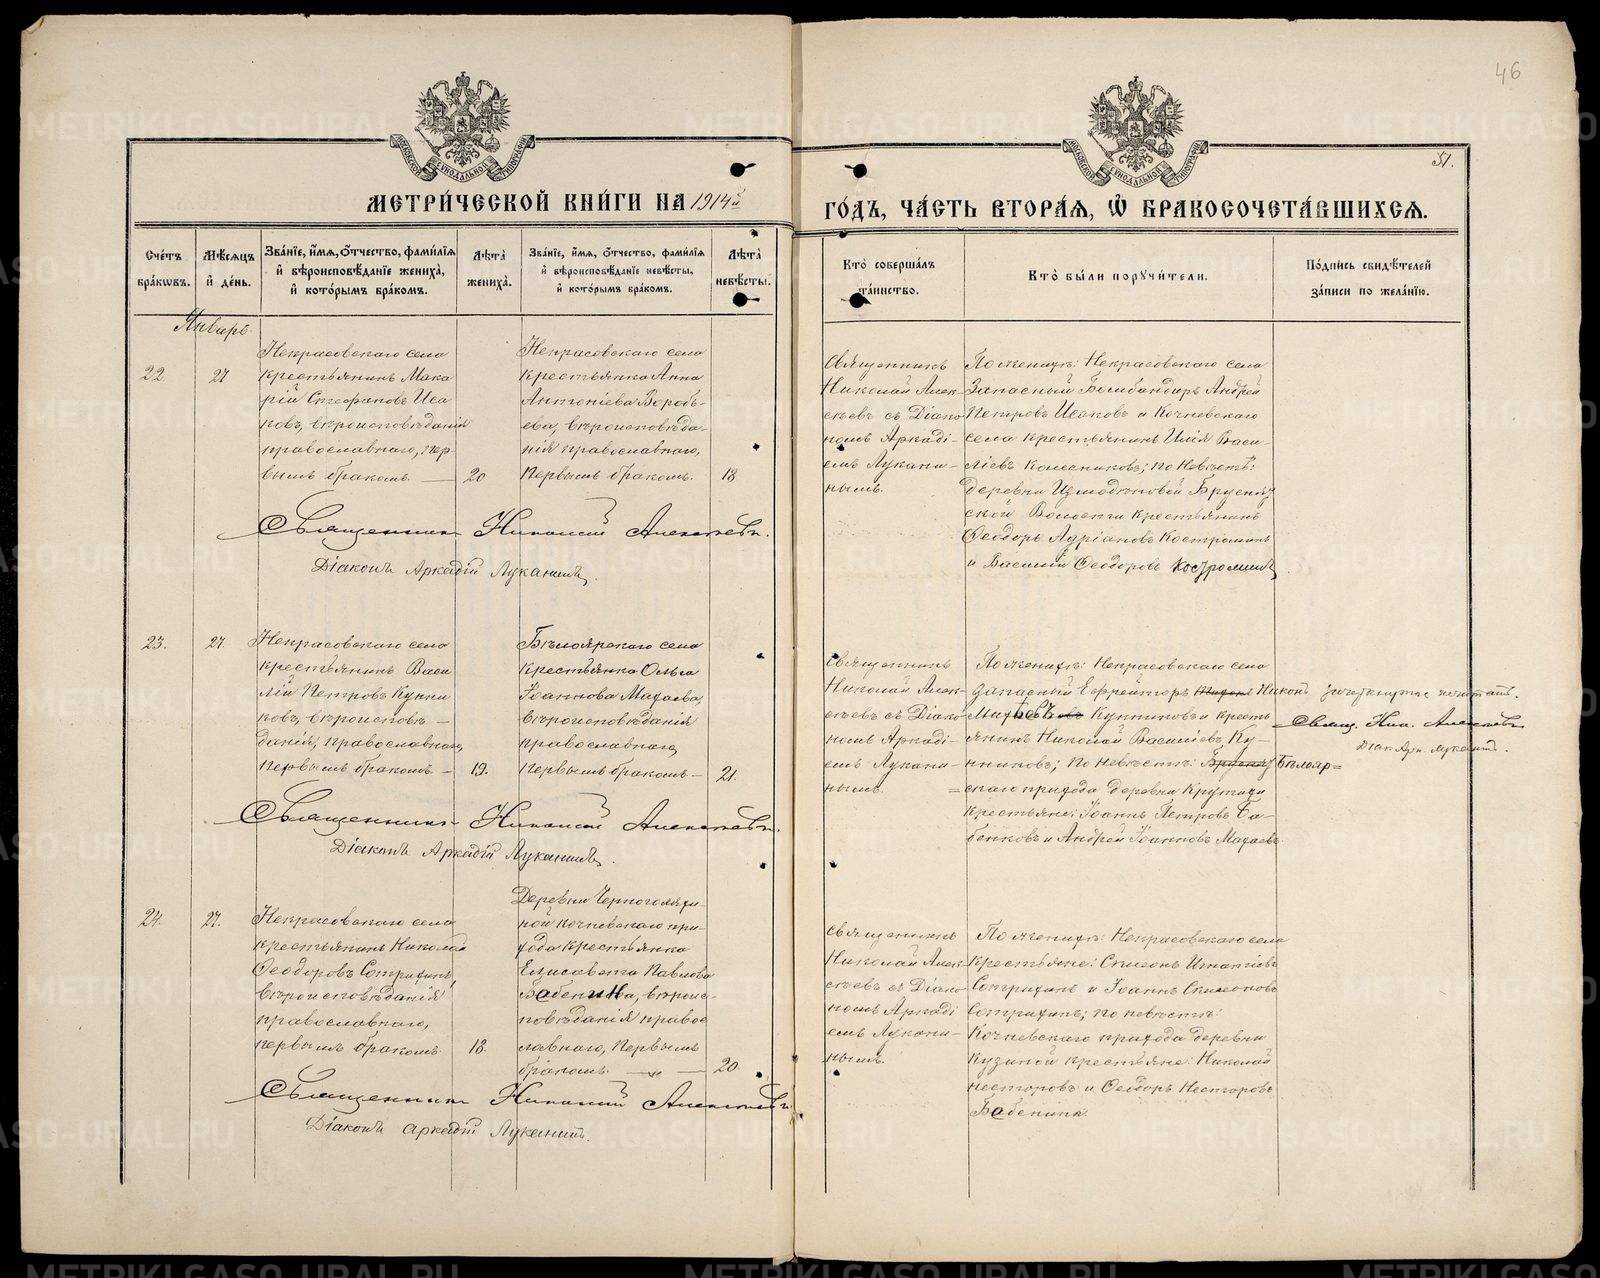 46
51.
МЕТРИ́ЧЕСКОЙ КНИ́ГИ НА 1914й
ГО́ДЪ, ЧА́СТЬ ВТОРА́Ѧ, Ѽ БРАКОСОЧЕТА́ВШИХСѦ.
Сче́тъ бра́кѡвъ.
Мѣ́сѧцъ и҆ де́нь.
Зва́нїе, и҆́мѧ, ѻ҆́тчество, фами́лїѧ
и҆ вѣроисповѣ́данїе жениха̀,
и҆ кото́рымъ бра́комъ.
Лѣ́та жениха̀.
Зва́нїе, и҆́мѧ, ѻ҆́тчество, фами́лїѧ
и҆ вѣроисповѣ́данїе невѣ́сты,
и҆ кото́рымъ бра́комъ.
Лѣ́та невѣ́сты.
Кто̀ соверша́лъ
та́инство.
Кто̀ бы́ли порꙋчи́тели.
По́дпись свидѣ́телей
за́писи по жела́нїю.
Январь.
22.
27
Некрасовскаго села
крестьянинъ Мака
рій Стефановъ Иса
ковъ, вѣроисповѣданія
православнаго, пер-
вымъ бракомъ. —
20
Некрасовскаго села
крестьянка Анна
Антоніева Воробь-
ева, вѣроисповѣда-
нія православнаго,
первымъ бракомъ.
18
Священникъ
Николай Алек-
сѣевъ съ Діако
номъ Аркаді-
емъ Лукани-
нымъ.
По женихѣ: Некрасовскаго села
Запасный Бомбандиръ Андрей
Петровъ Исаковъ и Кочневскаго
села крестьянинъ Илія Васи-
ліевъ Колесниковъ; по невѣстѣ:
деревни Измоденовой Бруснят
ской Волости крестьянинъ
Ѳеодоръ Адріановъ Костроминъ
и Василій Ѳеодоровъ Костроминъ.
Священникъ Николай Алексѣевъ.
Діаконъ Аркадій Луканинъ.
23.
27.
Некрасовскаго села
крестьянинъ Васи
лій Петровъ Кунни
ковъ, вѣроисповѣ-
данія, православнаго,
первымъ бракомъ. —
19.
Бѣлоярскаго села
крестьянка Ольга
Іоаннова Махаева,
вѣроисповѣданія
православнаго,
первымъ бракомъ —
21.
Священникъ
Николай Алек-
сѣевъ съ Діако
номъ Аркаді-
емъ Лукани-
нымъ.
По женихѣ: Некрасовскаго села
Запасный Ефрейторъ Никонъ
Кунниковъ и кресть
янинъ Николай Василіевъ Ку-
нниковъ; по невѣстѣ: Бѣлояр=
=скаго прихода деревни Крутихи
крестьяне: Іоаннъ Петровъ Ба-
бенковъ и Андрей Іоанновъ Махаевъ.
зачеркнутое не читать.
Свящ. Ник. Алексѣевъ
Діак. Арк. Луканинъ.
Священникъ Николай Алексѣевъ.
Діаконъ Аркадій Луканинъ.
24.
27.
Некрасовскаго села
крестьянинъ Николай
Ѳеодоровъ Сотрихинъ,
вѣроисповѣданія
православнаго,
первымъ бракомъ.
18.
Деревни Черноголяхи-
ной Кочневскаго при-
хода крестьянка
Елисавета Павлова
Бабенина, вѣроис-
повѣданія право
славнаго, первымъ
бракомъ. —
20.
Священникъ
Николай Алек-
сѣевъ съ Діако
номъ Аркаді
емъ Лукани-
нымъ.
По женихѣ: Некрасовскаго села
крестьяне: Симеонъ Игнатіевъ
Сотрихинъ и Іоаннъ Симеоновъ
Сотрихинъ; по невѣстѣ:
Кочневскаго прихода деревни
Кузиной крестьяне: Николай
Несторовъ и Ѳеодоръ Несторовъ
Бабенины.
Священникъ Николай Алексѣевъ.
Діаконъ Аркадій Луканинъ.
METRIKI.GASO-URAL.RU